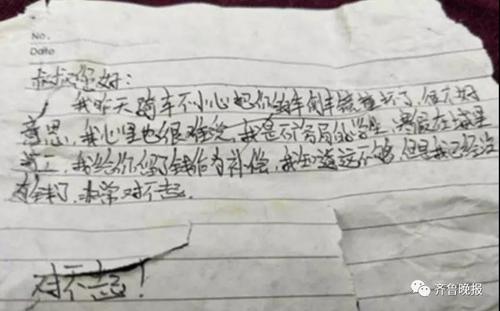 No.
Date
叔叔您好:
我昨天骑车不小心把你的车倒车镜撞坏了,很不好
意思,我心里也很难受,我是的学生,暑假在这里
打工,我给你留了钱作为补偿,我知道远不够,但是我已经没
有钱了,非常对不起.
对不起!
齐鲁晚报